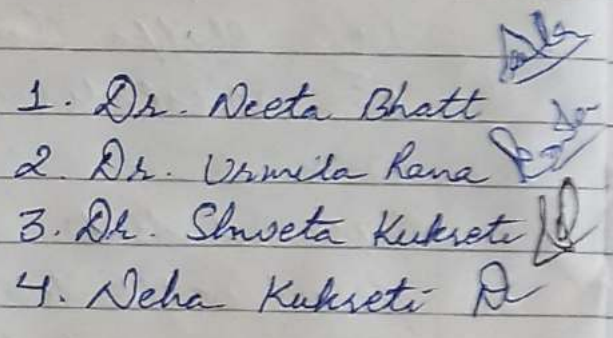 1. Dr. Neeta Bhatt
2. Dr. Urmila Rana
3. Dr. Shweta Kukreti
4. Neha Kukreti